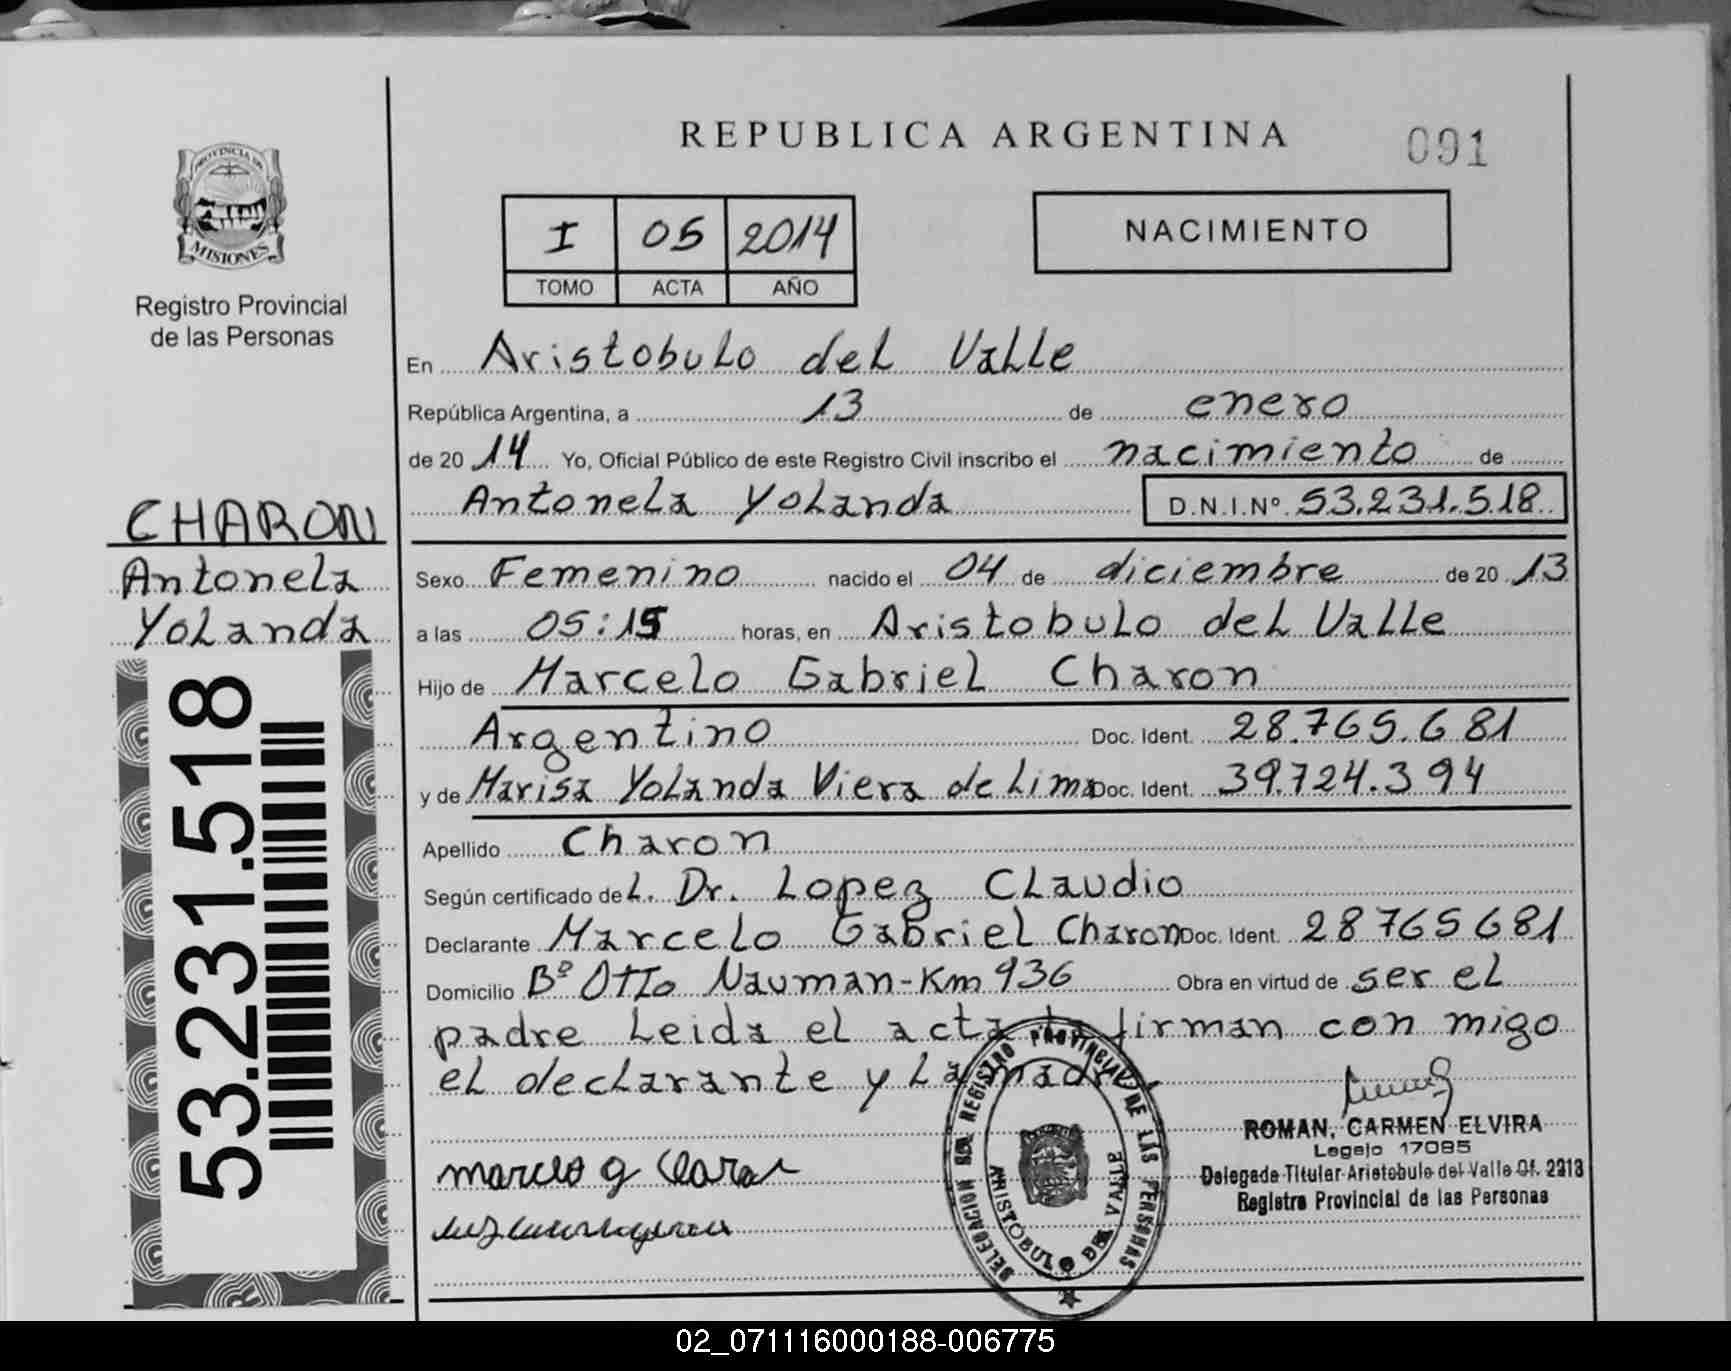 REPUBLICA ARGENTINA
091
PROVINCIA DE
MISIONES
Registro Provincial
de las Personas
I 05 2014
TOMO ACTA AÑO
NACIMIENTO
En Aristobulo del Valle
República Argentina, a 13 de enero
de 20 14 Yo, Oficial Público de este Registro Civil inscribo el nacimiento de
Antonela Yolanda D.N.I.Nº 53.231.518
CHARON
Antonela
Yolanda
53.231.518
Sexo Femenino nacido el 04 de diciembre de 20 13
a las 05:15 horas, en Aristobulo del Valle
Hijo de Marcelo Gabriel Charon
Argentino Doc. Ident. 28.765.681
y de Marisa Yolanda Viera de Lima Doc. Ident. 39.724.394
Apellido Charon
Según certificado del. Dr. Lopez Claudio
Declarante Marcelo Gabriel Charon Doc. Ident. 28765681
Domicilio Bº Otto Nauman-Km 936 Obra en virtud de ser el
padre Leida el acta la firman con migo
el declarante y la madre
ROMAN, CARMEN ELVIRA
Legajo 17085
Delegada Titular Aristobulo del Valle Of. 2213
Registro Provincial de las Personas
DELEGACION DEL REGISTRO PROVINCIAL DE LAS PERSONAS
ARISTOBULO DEL VALLE
02_071116000188-006775